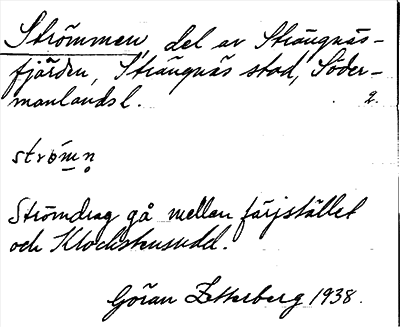 Strömmen, del av Strängnäs-
fjärden, Strängnäs stad, Söder-
manlands l. 2.
ström̥n̥
Strömdrag gå mellan färjstället
och Klockstensudd.
Göran Zetterberg 1938.